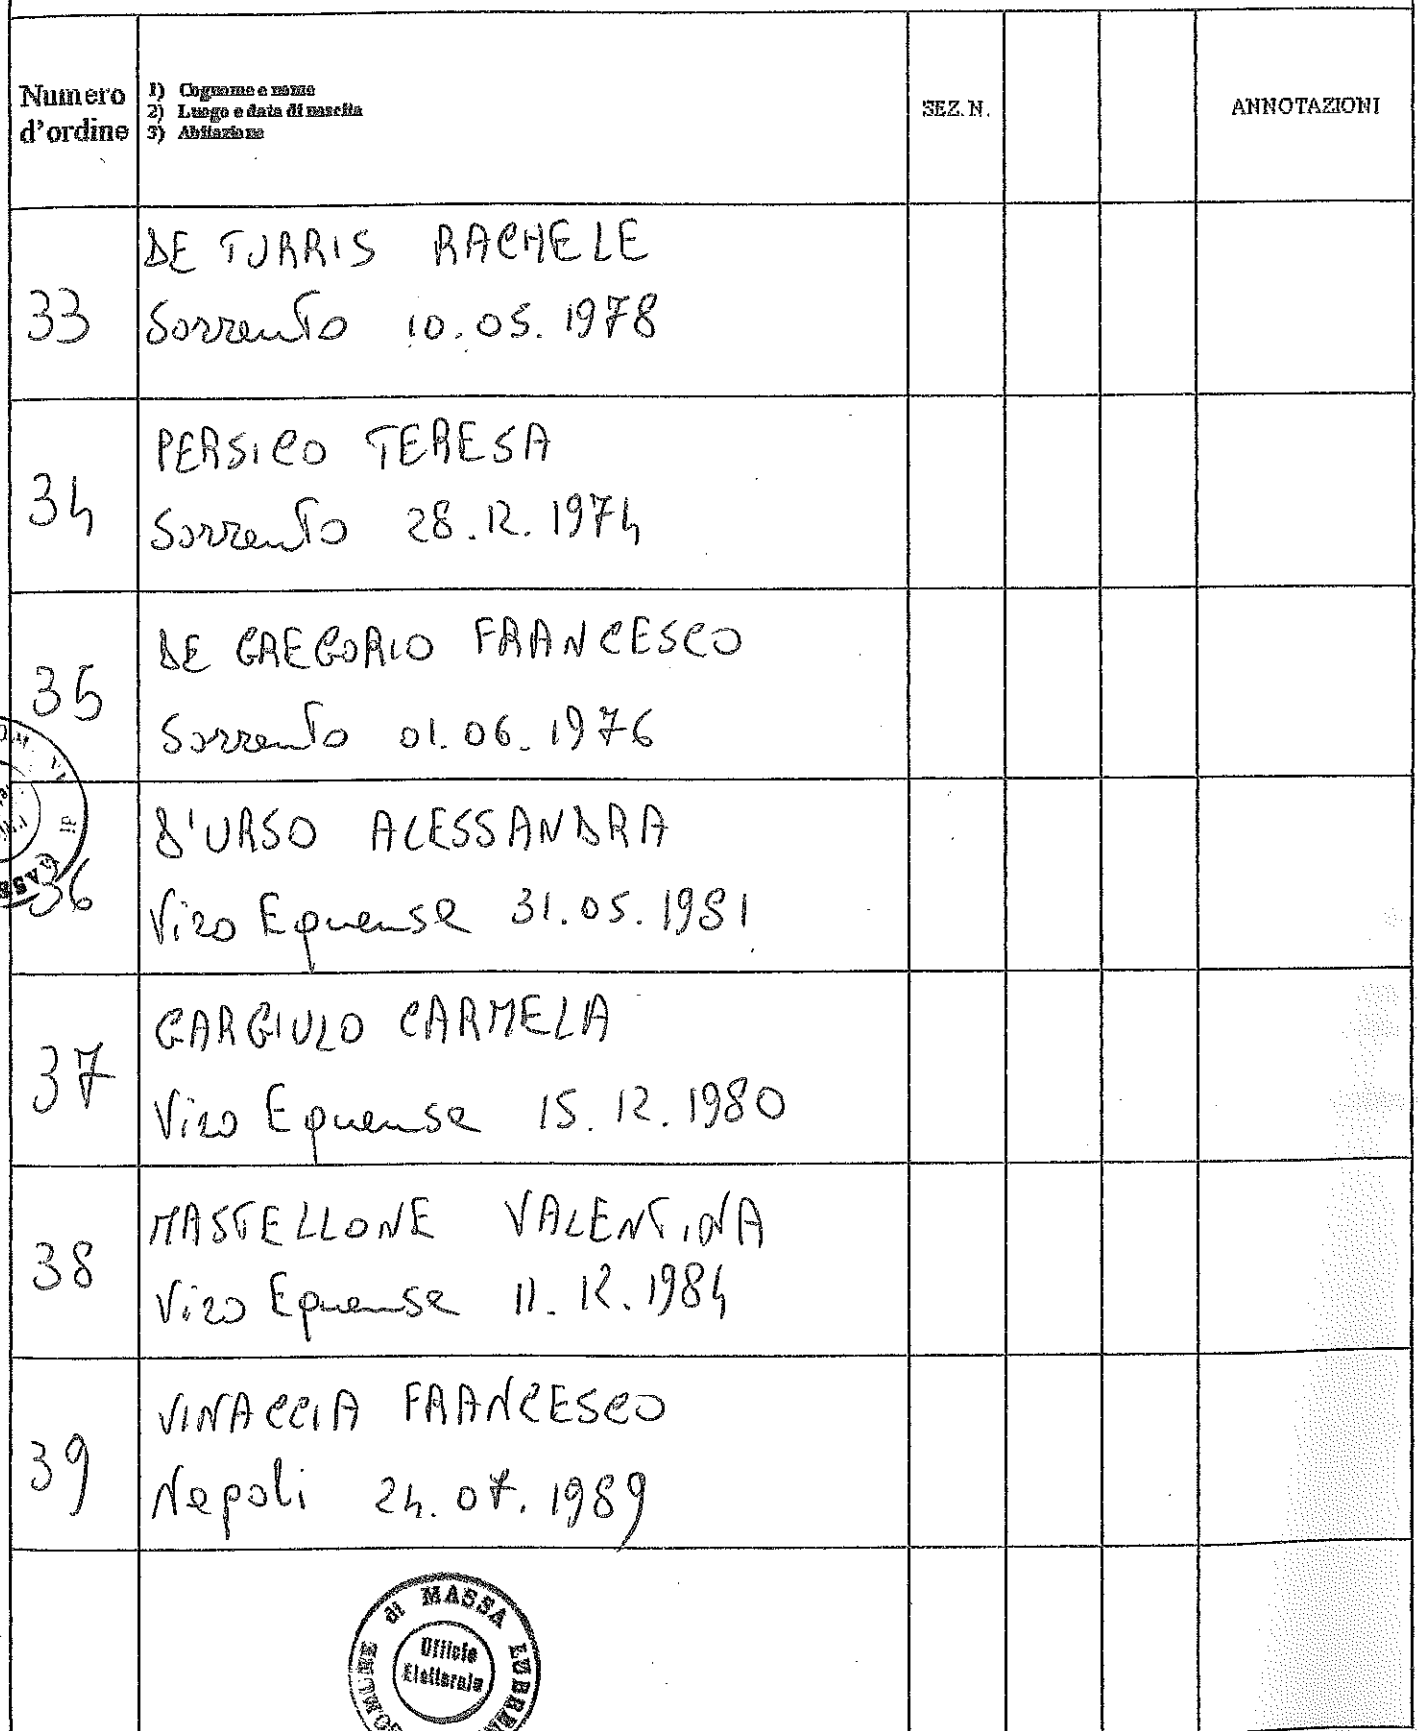 Numero d'ordine
1) Cognome e nome
2) Luogo e data di nascita
3) Abitazione
SEZ. N.
ANNOTAZIONI
33
DE TURRIS RACHELE
Sorrento 10.05.1978
34
PERSICO TERESA
Sorrento 28.12.1974
35
DE GREGORIO FRANCESCO
Sorrento 01.06.1976
36
D'URSO ALESSANDRA
Vico Equense 31.05.1981
37
GARGIULO CARMELA
Vico Equense 15.12.1980
38
MASTELLONE VALENTINA
Vico Equense 11.12.1984
39
VINACCIA FRANCESCO
Napoli 24.07.1989
COMUNE di MASSA
Ufficio
Elettorale